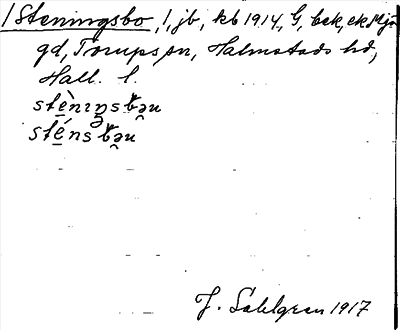 1 Steningsbo, 1, jb, kb 1914, G, bek, ek
gd, Torups sn, Halmstads hd,
Hall. l.
stèniŋsbəu
sténsbəu
J. Sahlgren 1917